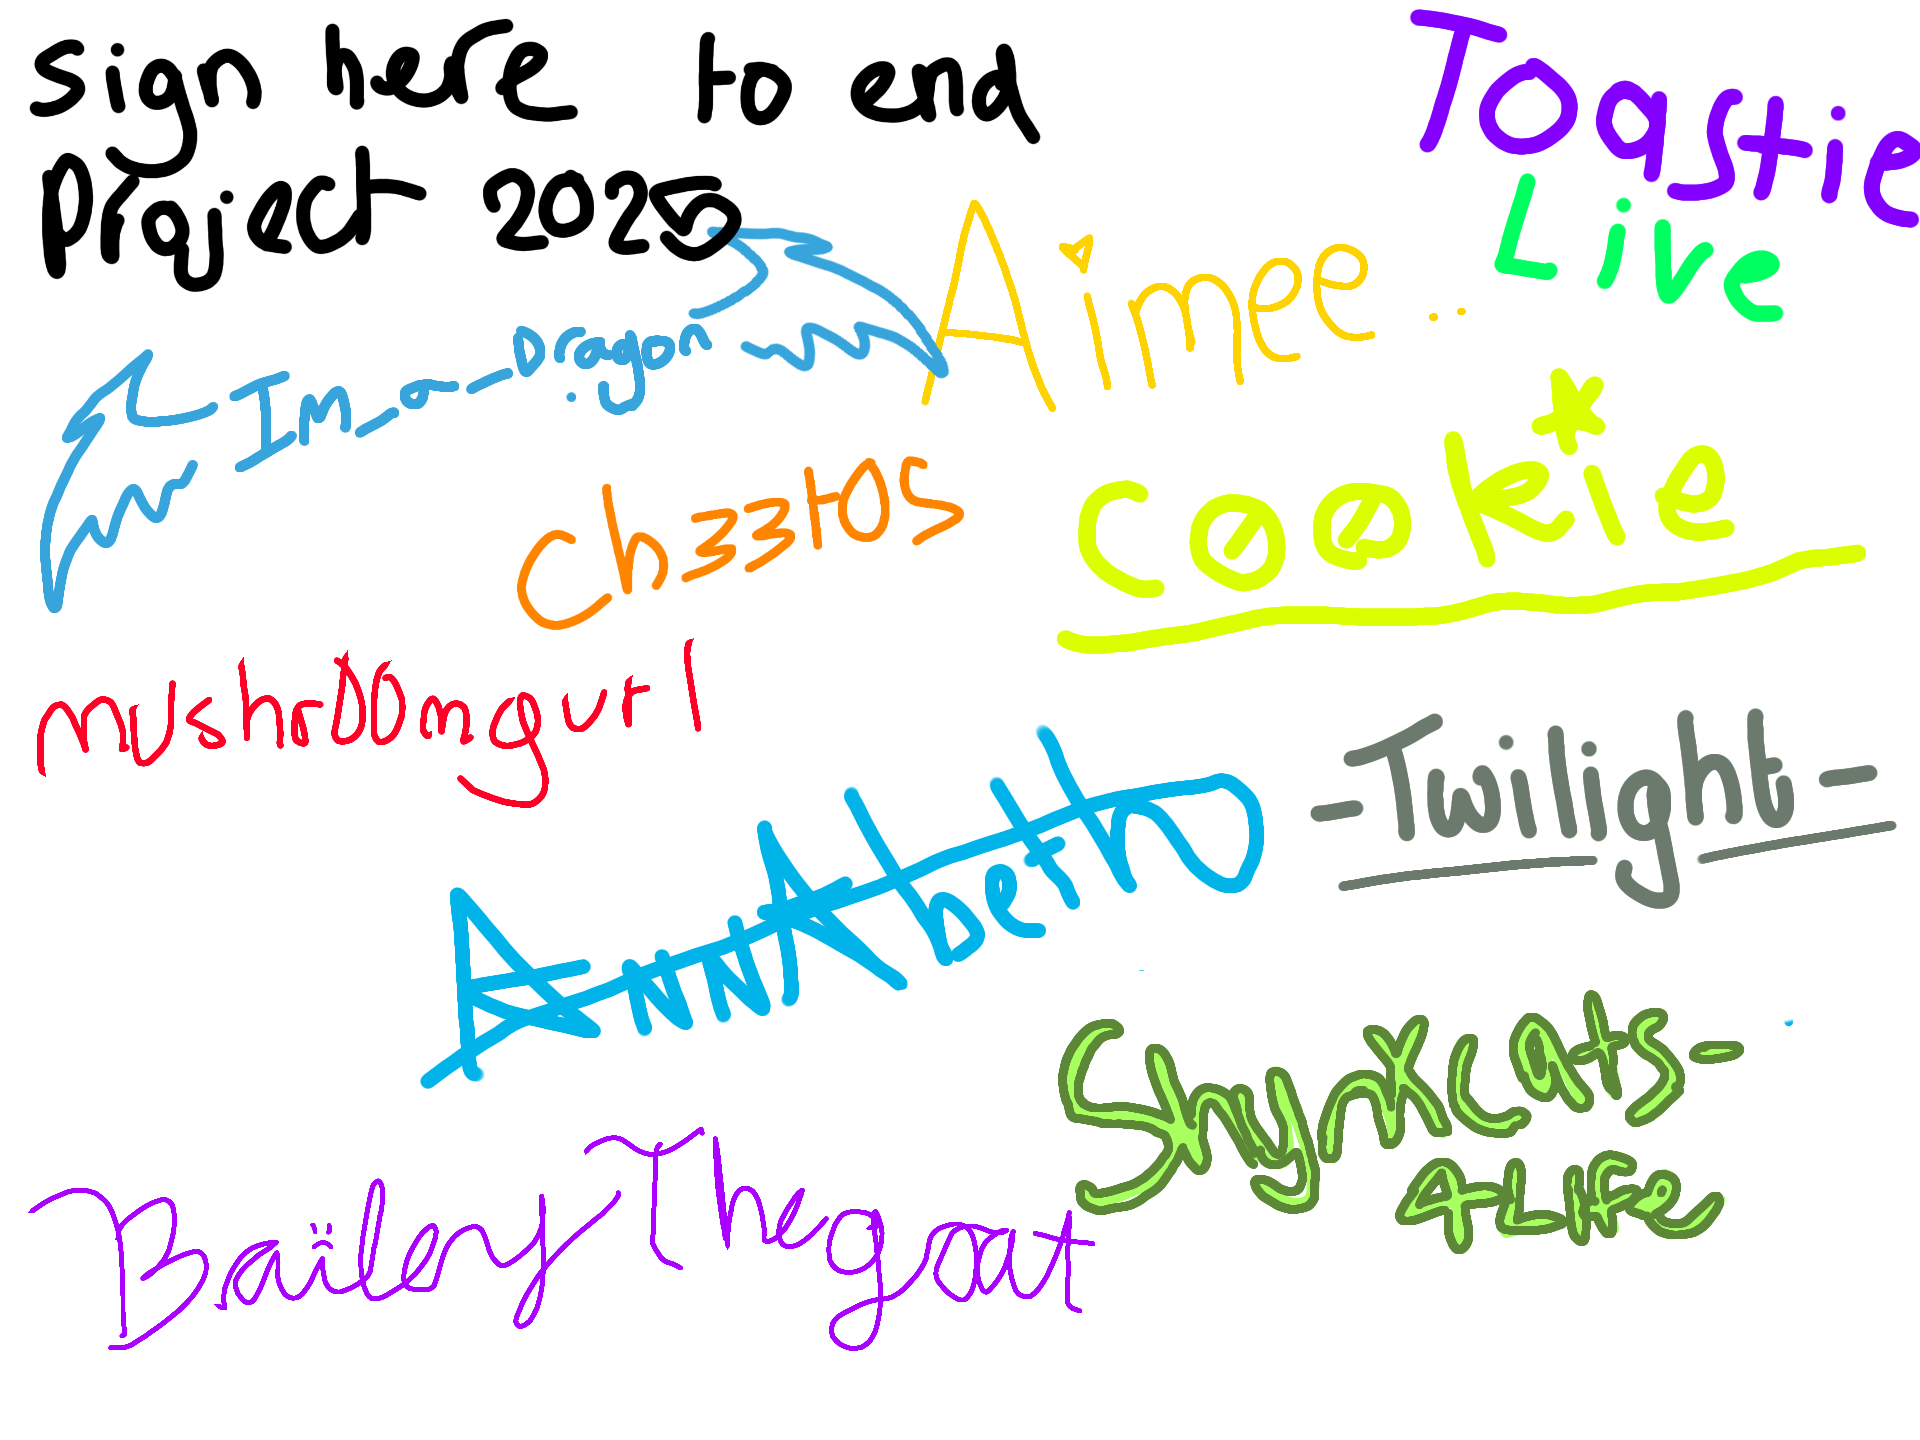 sign here to end
Project 2025
Toastie
Live
Aimee ..
Im_a__Dragon.
Ch33tos
cookie
mushr00mgurl
-Twilight-
AnnAbeth
ShynxCats-
4-Life
BaileyThegoat